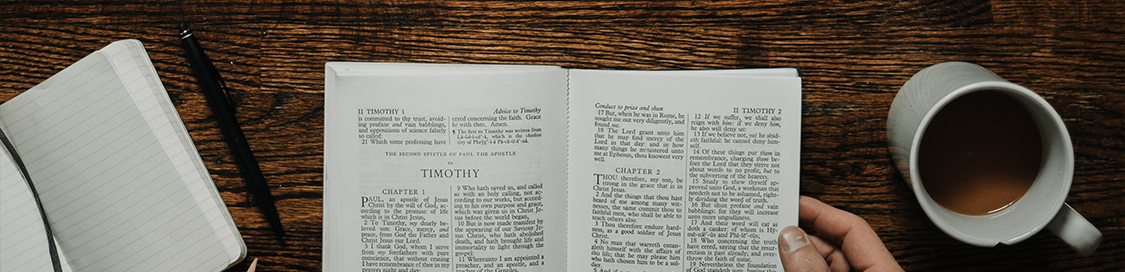 II TIMOTHY 1
Advice to Timothy
is committed to thy trust, avoid-
ing profane and vain babblings,
and oppositions of science falsely
so called:
21 Which some professing have
erred concerning the faith. Grace
be with thee. Amen.
¶ The first to Timothy was written from
which is the chiefest
THE SECOND EPISTLE OF PAUL THE APOSTLE
TO
TIMOTHY
CHAPTER 1
PAUL, an apostle of Jesus
Christ by the will of God, ac-
cording to the promise of life
which is in Christ Jesus,
2 To Timothy, my dearly be-
loved son: Grace, mercy, and
peace, from God the Father and
Christ Jesus our Lord.
3 I thank God, whom I serve
from my forefathers with pure
conscience, that without ceasing
I have remembrance of thee in my
prayers night and day:
9 Who hath saved us, and called
us with an holy calling, not ac-
cording to our works, but accord-
ing to his own purpose and grace,
which was given us in Christ Je-
sus before the world began,
10 But is now made manifest by
the appearing of our Saviour Je-
sus Christ, who hath abolished
death, and hath brought life and
immortality to light through the
gospel:
11 Whereunto I am appointed a
preacher, and an apostle, and a
teacher of the Gentiles.
Conduct to prize and shun
II TIMOTHY 2
17 But, when he was in Rome, he
sought me out very diligently, and
found me.
18 The Lord grant unto him
that he may find mercy of the
Lord in that day: and in how
many things he ministered unto
me at Ephesus, thou knowest very
well.
CHAPTER 2
THOU therefore, my son, be
strong in the grace that is in
Christ Jesus.
2 And the things that thou hast
heard of me among many wit-
nesses, the same commit thou to
faithful men, who shall be able to
teach others also.
3 Thou therefore endure hard-
ness, as a good soldier of Jesus
Christ.
4 No man that warreth entan-
gleth himself with the affairs of
this life; that he may please him
who hath chosen him to be a sol-
dier.
12 If we suffer, we shall also
reign with him: if we deny him,
he also will deny us:
13 If we believe not, yet he abid-
eth faithful: he cannot deny him-
self.
14 Of these things put them in
remembrance, charging them be-
fore the Lord that they strive not
about words to no profit, but to
the subverting of the hearers.
15 Study to shew thyself ap-
proved unto God, a workman that
needeth not to be ashamed, right-
ly dividing the word of truth.
16 But shun profane and vain
babblings: for they will increase
unto more ungodliness.
17 And their word will eat as
doth a canker: of whom is Hy-
18 Who concerning the truth
have erred, saying that the resur-
rection is past already; and over-
throw the faith of some.
19 Nevertheless the foundation
of God standeth sure, having